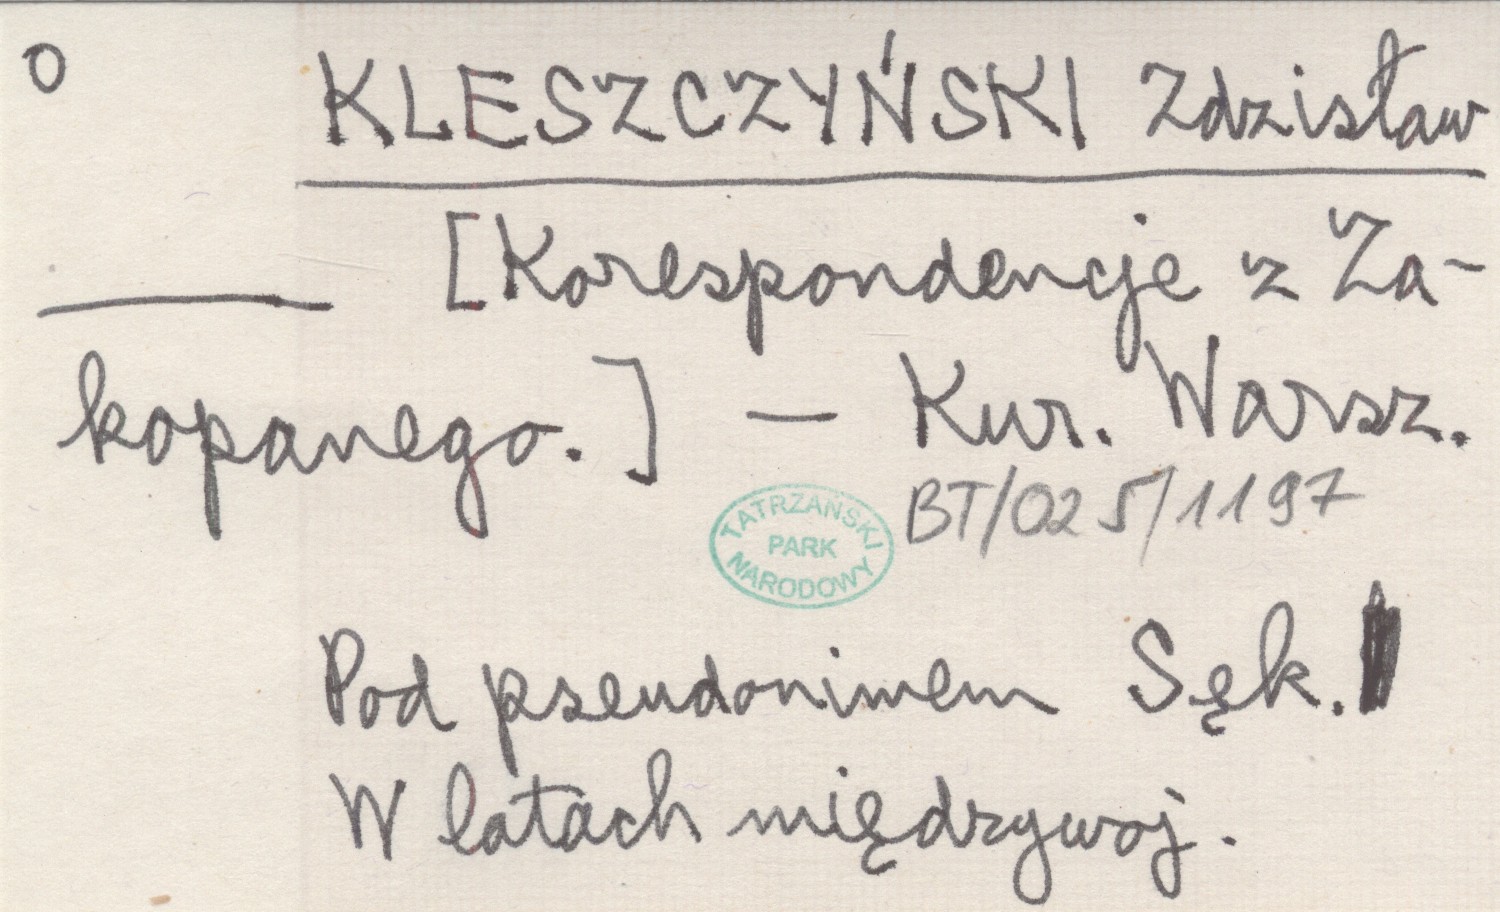 O
KLESZCZYŃSKI Zdzisław
[Korespondencje z Za-
kopanego.] — Kur. Warsz.
BT/025/1197
TATRZAŃSKI
PARK
NARODOWY
Pod pseudonimem Sęk.
W latach międzywoj.